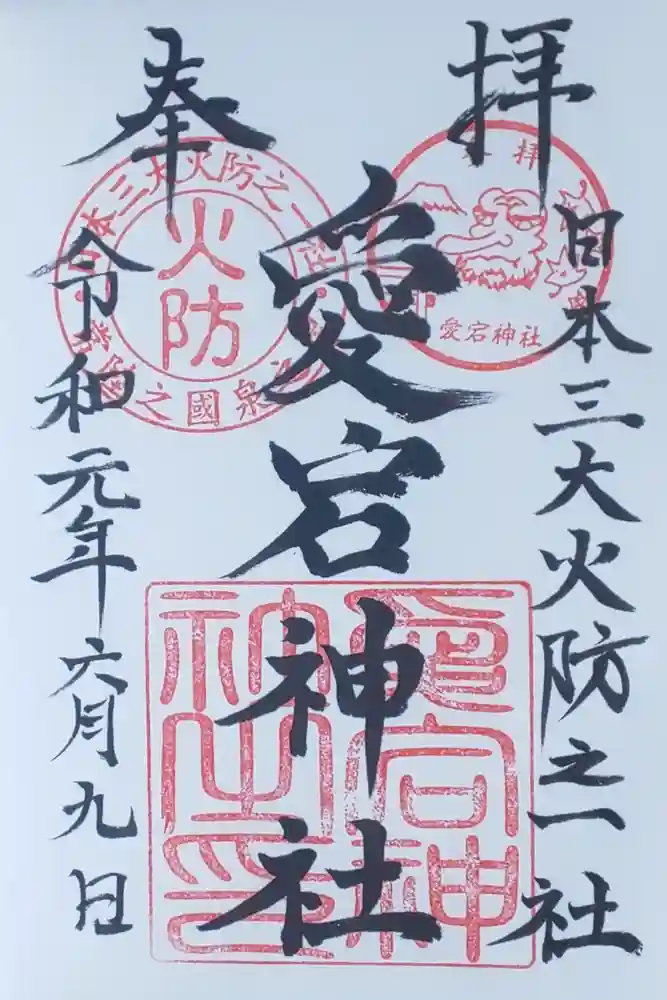 奉拝
日本三大火防之一社
愛宕神社
令和元年六月九日
拝
愛宕神社
日本三大火防之一
火防
愛宕神社之印